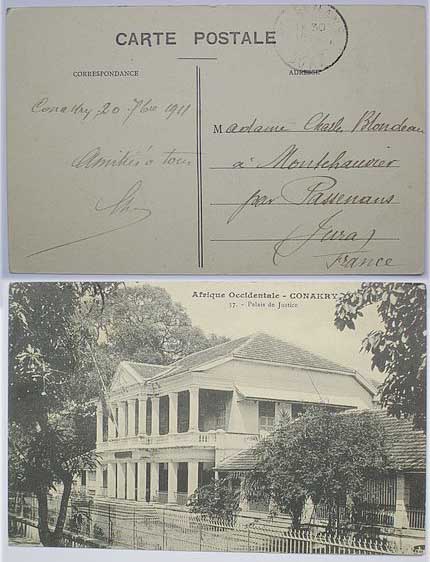 CARTE POSTALE
CORRESPONDANCE
ADRESSE
30
Conakry, 20 7bre 1911
Amitiés à tous
Madame Charles Blondeau
à Montchauvier
par Passenans
Jura
France
Afrique Occidentale - CONAKRY
37. - Palais de Justice